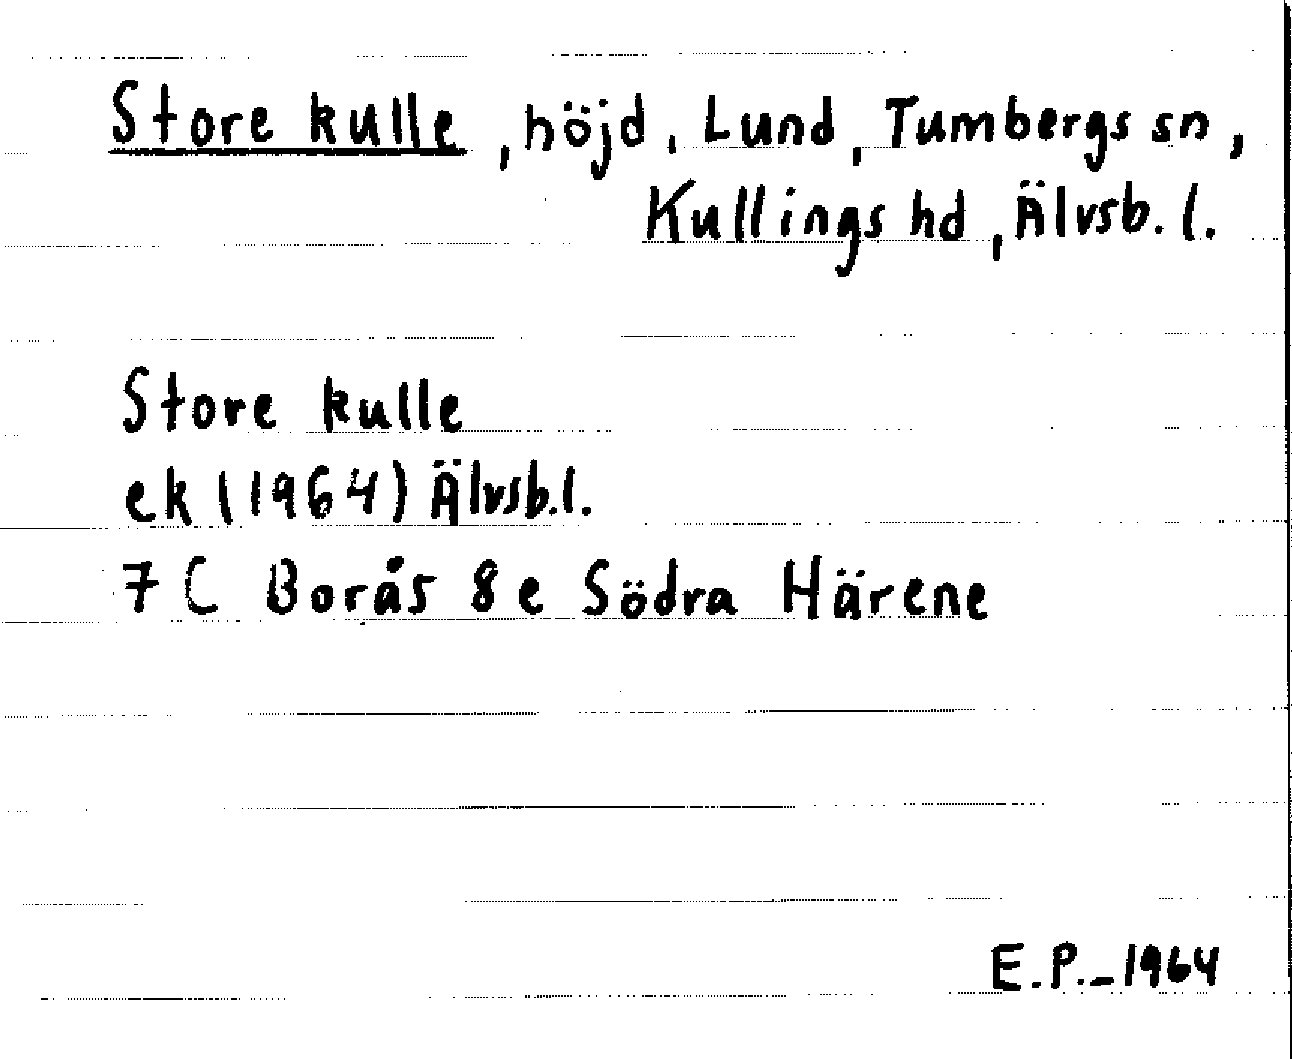 Store kulle, höjd, Lund, Tumbergs sn,
Kullings hd, Älvsb. l.
Store kulle
ek (1964) Älvsb.l.
7 C Borås 8e Södra Härene
E.P. - 1964